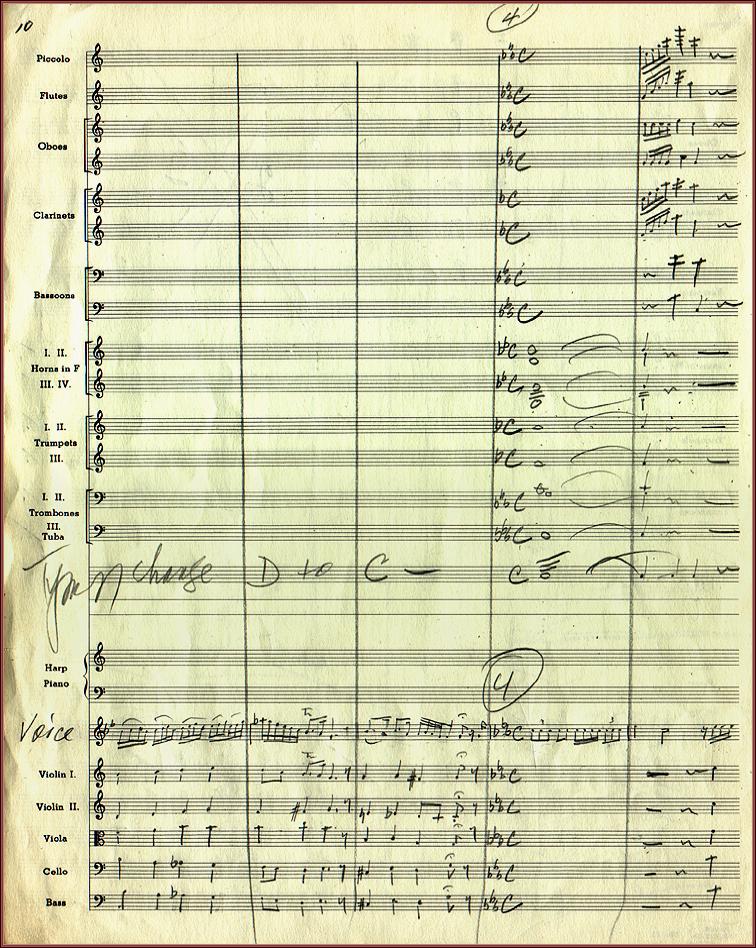 10
4
Piccolo
Flutes
Oboes
Clarinets
Bassoons
I. II.
Horns in F
III. IV.
I. II.
Trumpets
III.
I. II.
Trombones
III.
Tuba
change D to C —
Harp
Piano
4
Voice
Violin I.
Violin II.
Viola
Cello
Bass